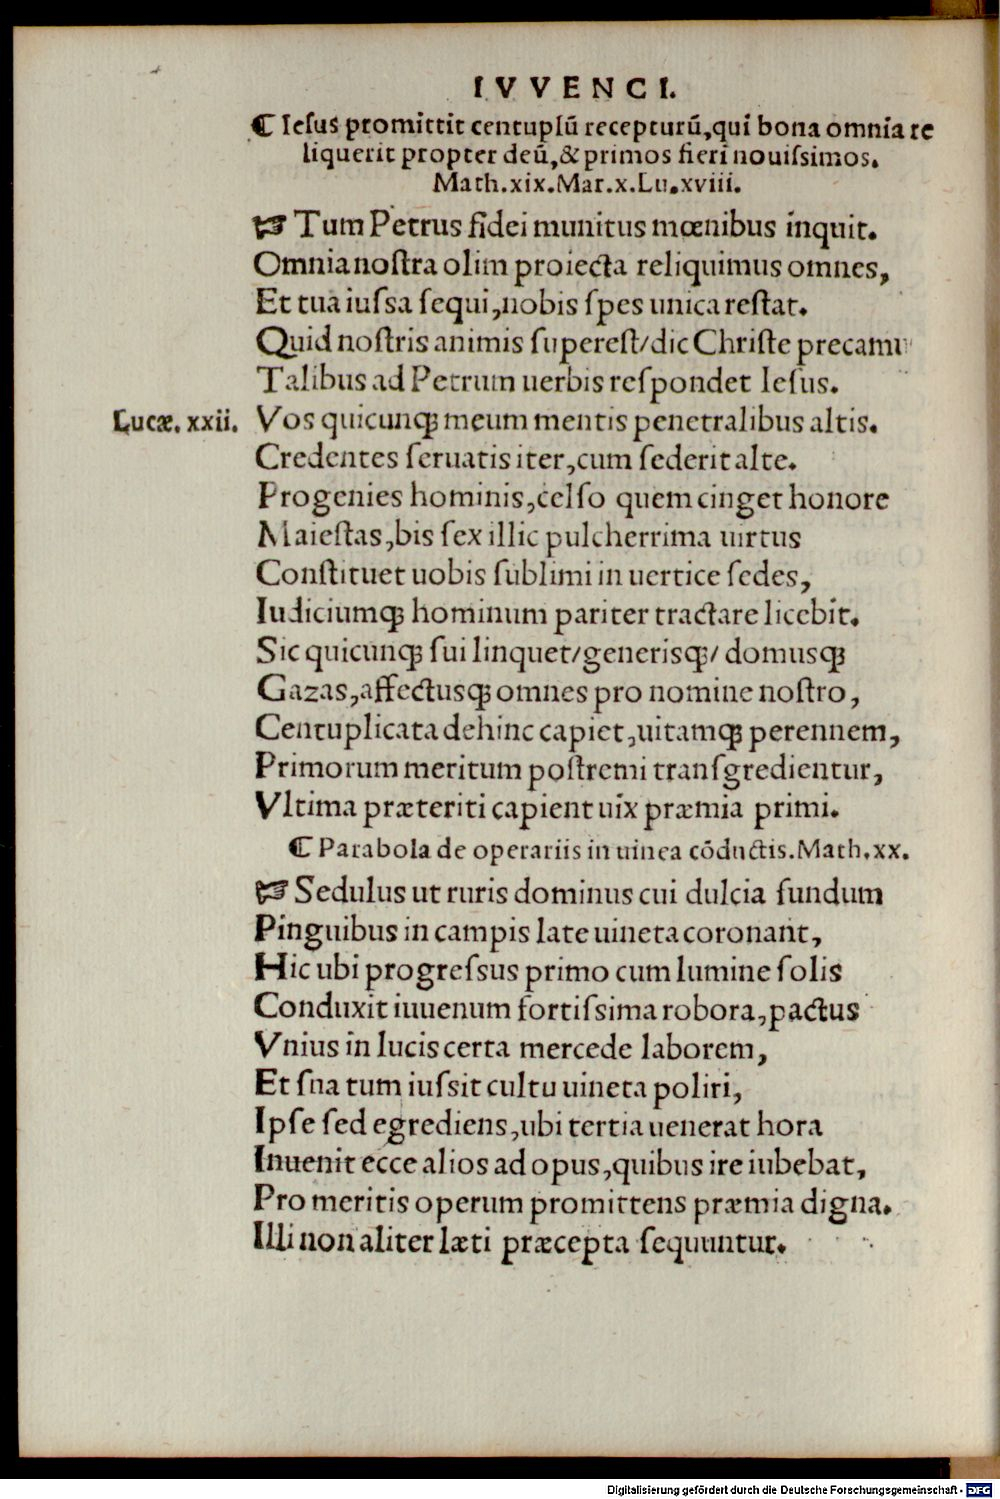 IVVENCI.
☾ Iesus promittit centuplū recepturū, qui bona omnia re
liquerit propter deū, & primos fieri nouiſsimos.
Math.xix.Mar.x.Lu.xviii.
☞ Tum Petrus fidei munitus mœnibus inquit.
Omnia noſtra olim proiecta reliquimus omnes,
Et tua iuſsa ſequi, nobis ſpes unica reſtat.
Quid noſtris animis ſupereſt/dic Chriſte precamu
Talibus ad Petrum uerbis reſpondet Ieſus.
Lucæ. xxii. Vos quicunqꝫ meum mentis penetralibus altis.
Credentes ſeruatis iter, cum ſederit alte.
Progenies hominis, celſo quem cinget honore
Maieſtas, bis ſex illic pulcherrima uirtus
Conſtituet uobis ſublimi in uertice ſedes,
Iudiciumqꝫ hominum pariter tractare licebit.
Sic quicunqꝫ ſui linquet/generisqꝫ/ domusqꝫ
Gazas, affectusqꝫ omnes pro nomine noſtro,
Centuplicata dehinc capiet, uitamqꝫ perennem,
Primorum meritum poſtremi tranſgredientur,
Vltima præteriti capient uix præmia primi.
☾ Parabola de operariis in uinea cōductis. Math.xx.
☞ Sedulus ut ruris dominus cui dulcia fundum
Pinguibus in campis late uineta coronant,
Hic ubi progreſsus primo cum lumine ſolis
Conduxit iuuenum fortiſsima robora, pactus
Vnius in lucis certa mercede laborem,
Et ſua tum iuſsit cultu uineta poliri,
Ipſe ſed egrediens, ubi tertia uenerat hora
Inuenit ecce alios ad opus, quibus ire iubebat,
Pro meritis operum promittens præmia digna.
Illi non aliter læti præcepta ſequuntur.
Digitalisierung gefördert durch die Deutsche Forschungsgemeinschaft - DFG